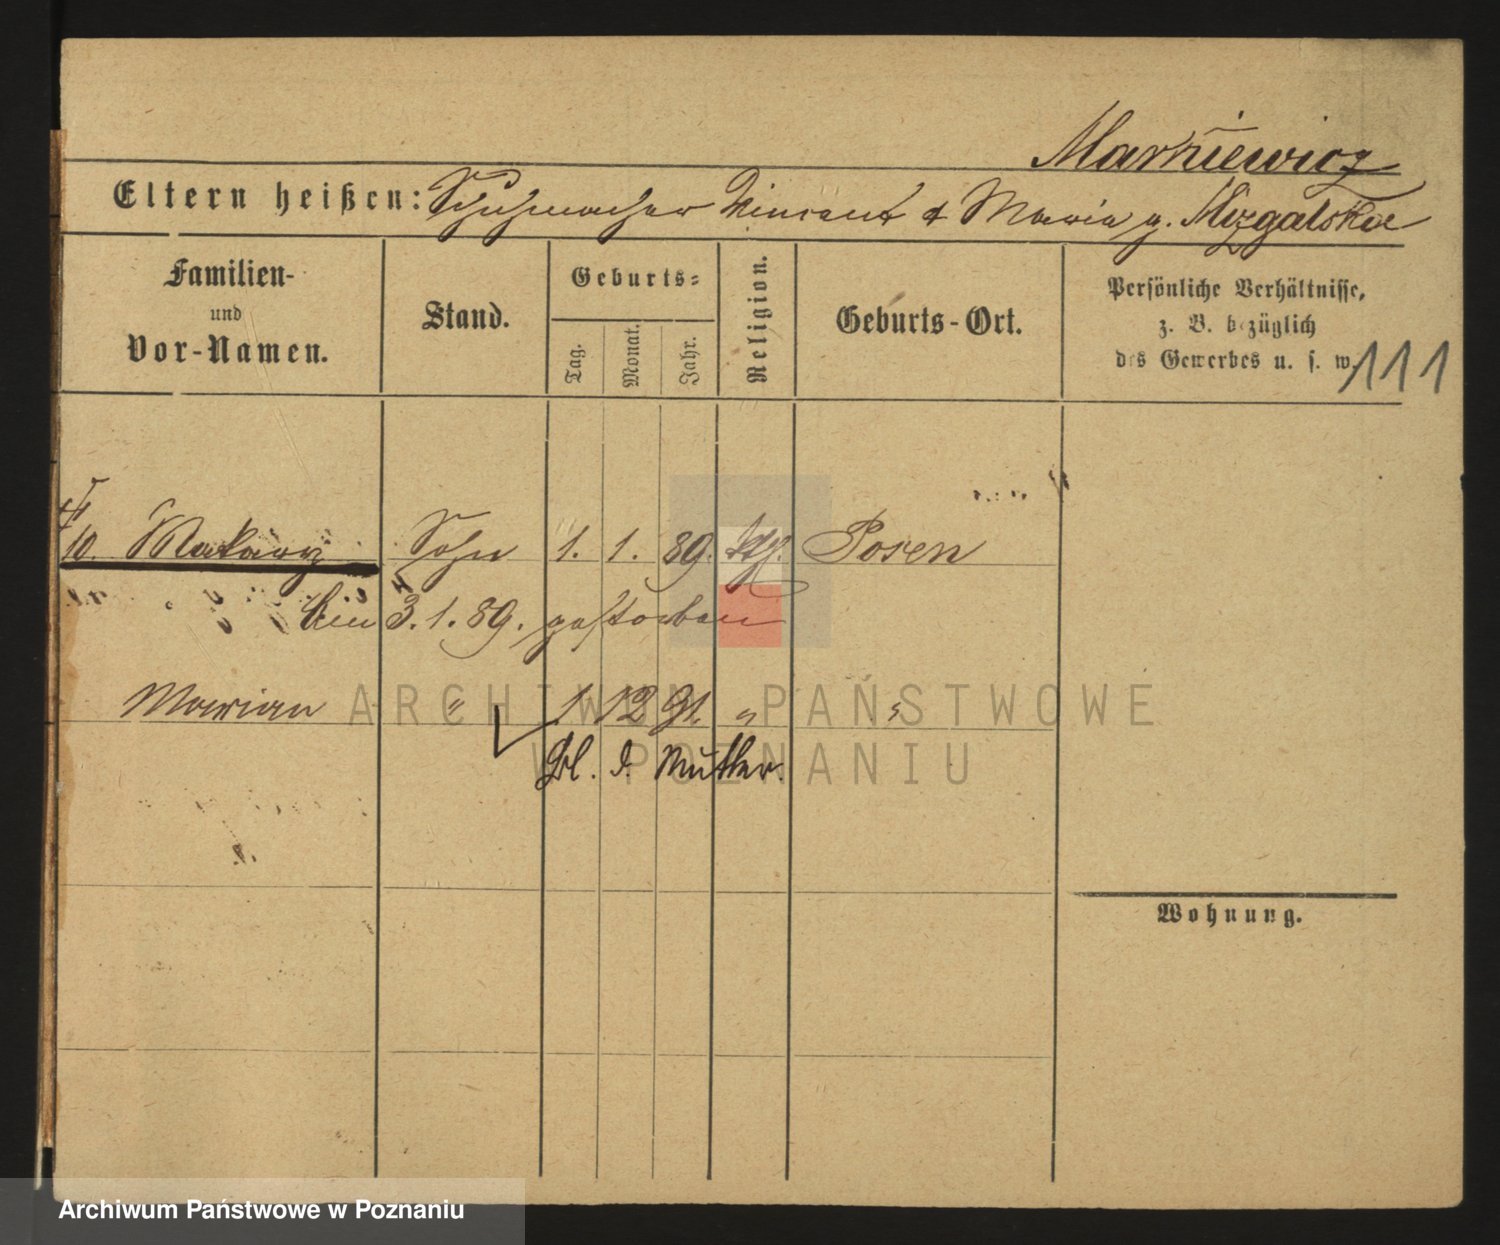 Markiewicz
Eltern heißen: Schuhmacher Vincent & Maria g. Mizgalska
Familien- und Vor-Namen.
Stand.
Geburts-
Tag.
Monat.
Jahr.
Religion.
Geburts-Ort.
Persönliche Verhältnisse, z. B. bezüglich des Gewerbes u. s. w.
111
10 Makary Sohn 1. 1. 89. kth. Posen
3. 1. 89. gestorben
Marian " 1 12 91. " "
Bl. d. Mutter.
Wohnung.
ARCHIWUM PAŃSTWOWE
W POZNANIU
Archiwum Państwowe w Poznaniu